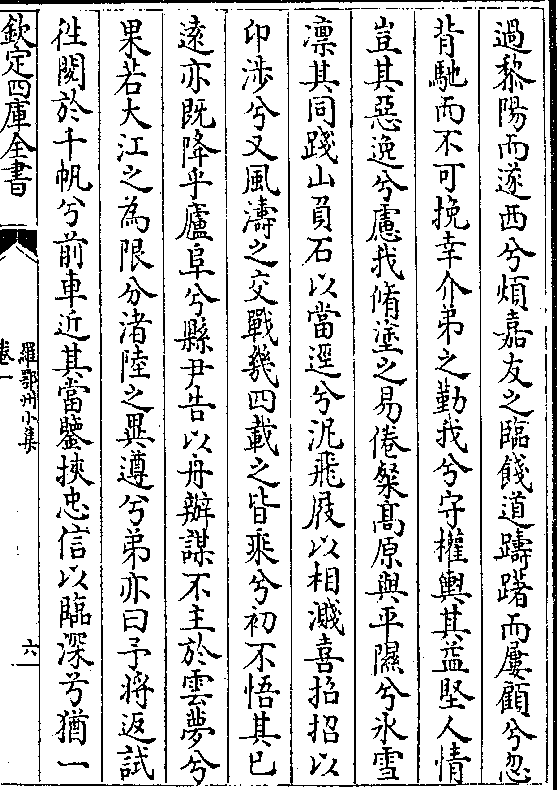 過黎陽而遂西兮煩嘉友之臨餞道躊躇而屢顧兮忽
背馳而不可挽幸介弟之勤我兮守權輿其益堅人情
豈其惡逸兮慮我脩塗之易倦粲髙原與平隰兮氷雪
凛其同踐山負石以當逕兮汎飛屐以相濺喜招招以
卬涉兮又風濤之交戰幾四載之皆乘兮初不悟其已
逺亦既降乎廬阜兮縣尹告以舟辦謀不主於雲夢兮
果若大江之為限分渚陸之異遵兮弟亦曰予将返試
徃閱於千帆兮前車近其當鑒挾忠信以臨深兮猶一
欽定四庫全書
羅鄂州小集
卷一
六